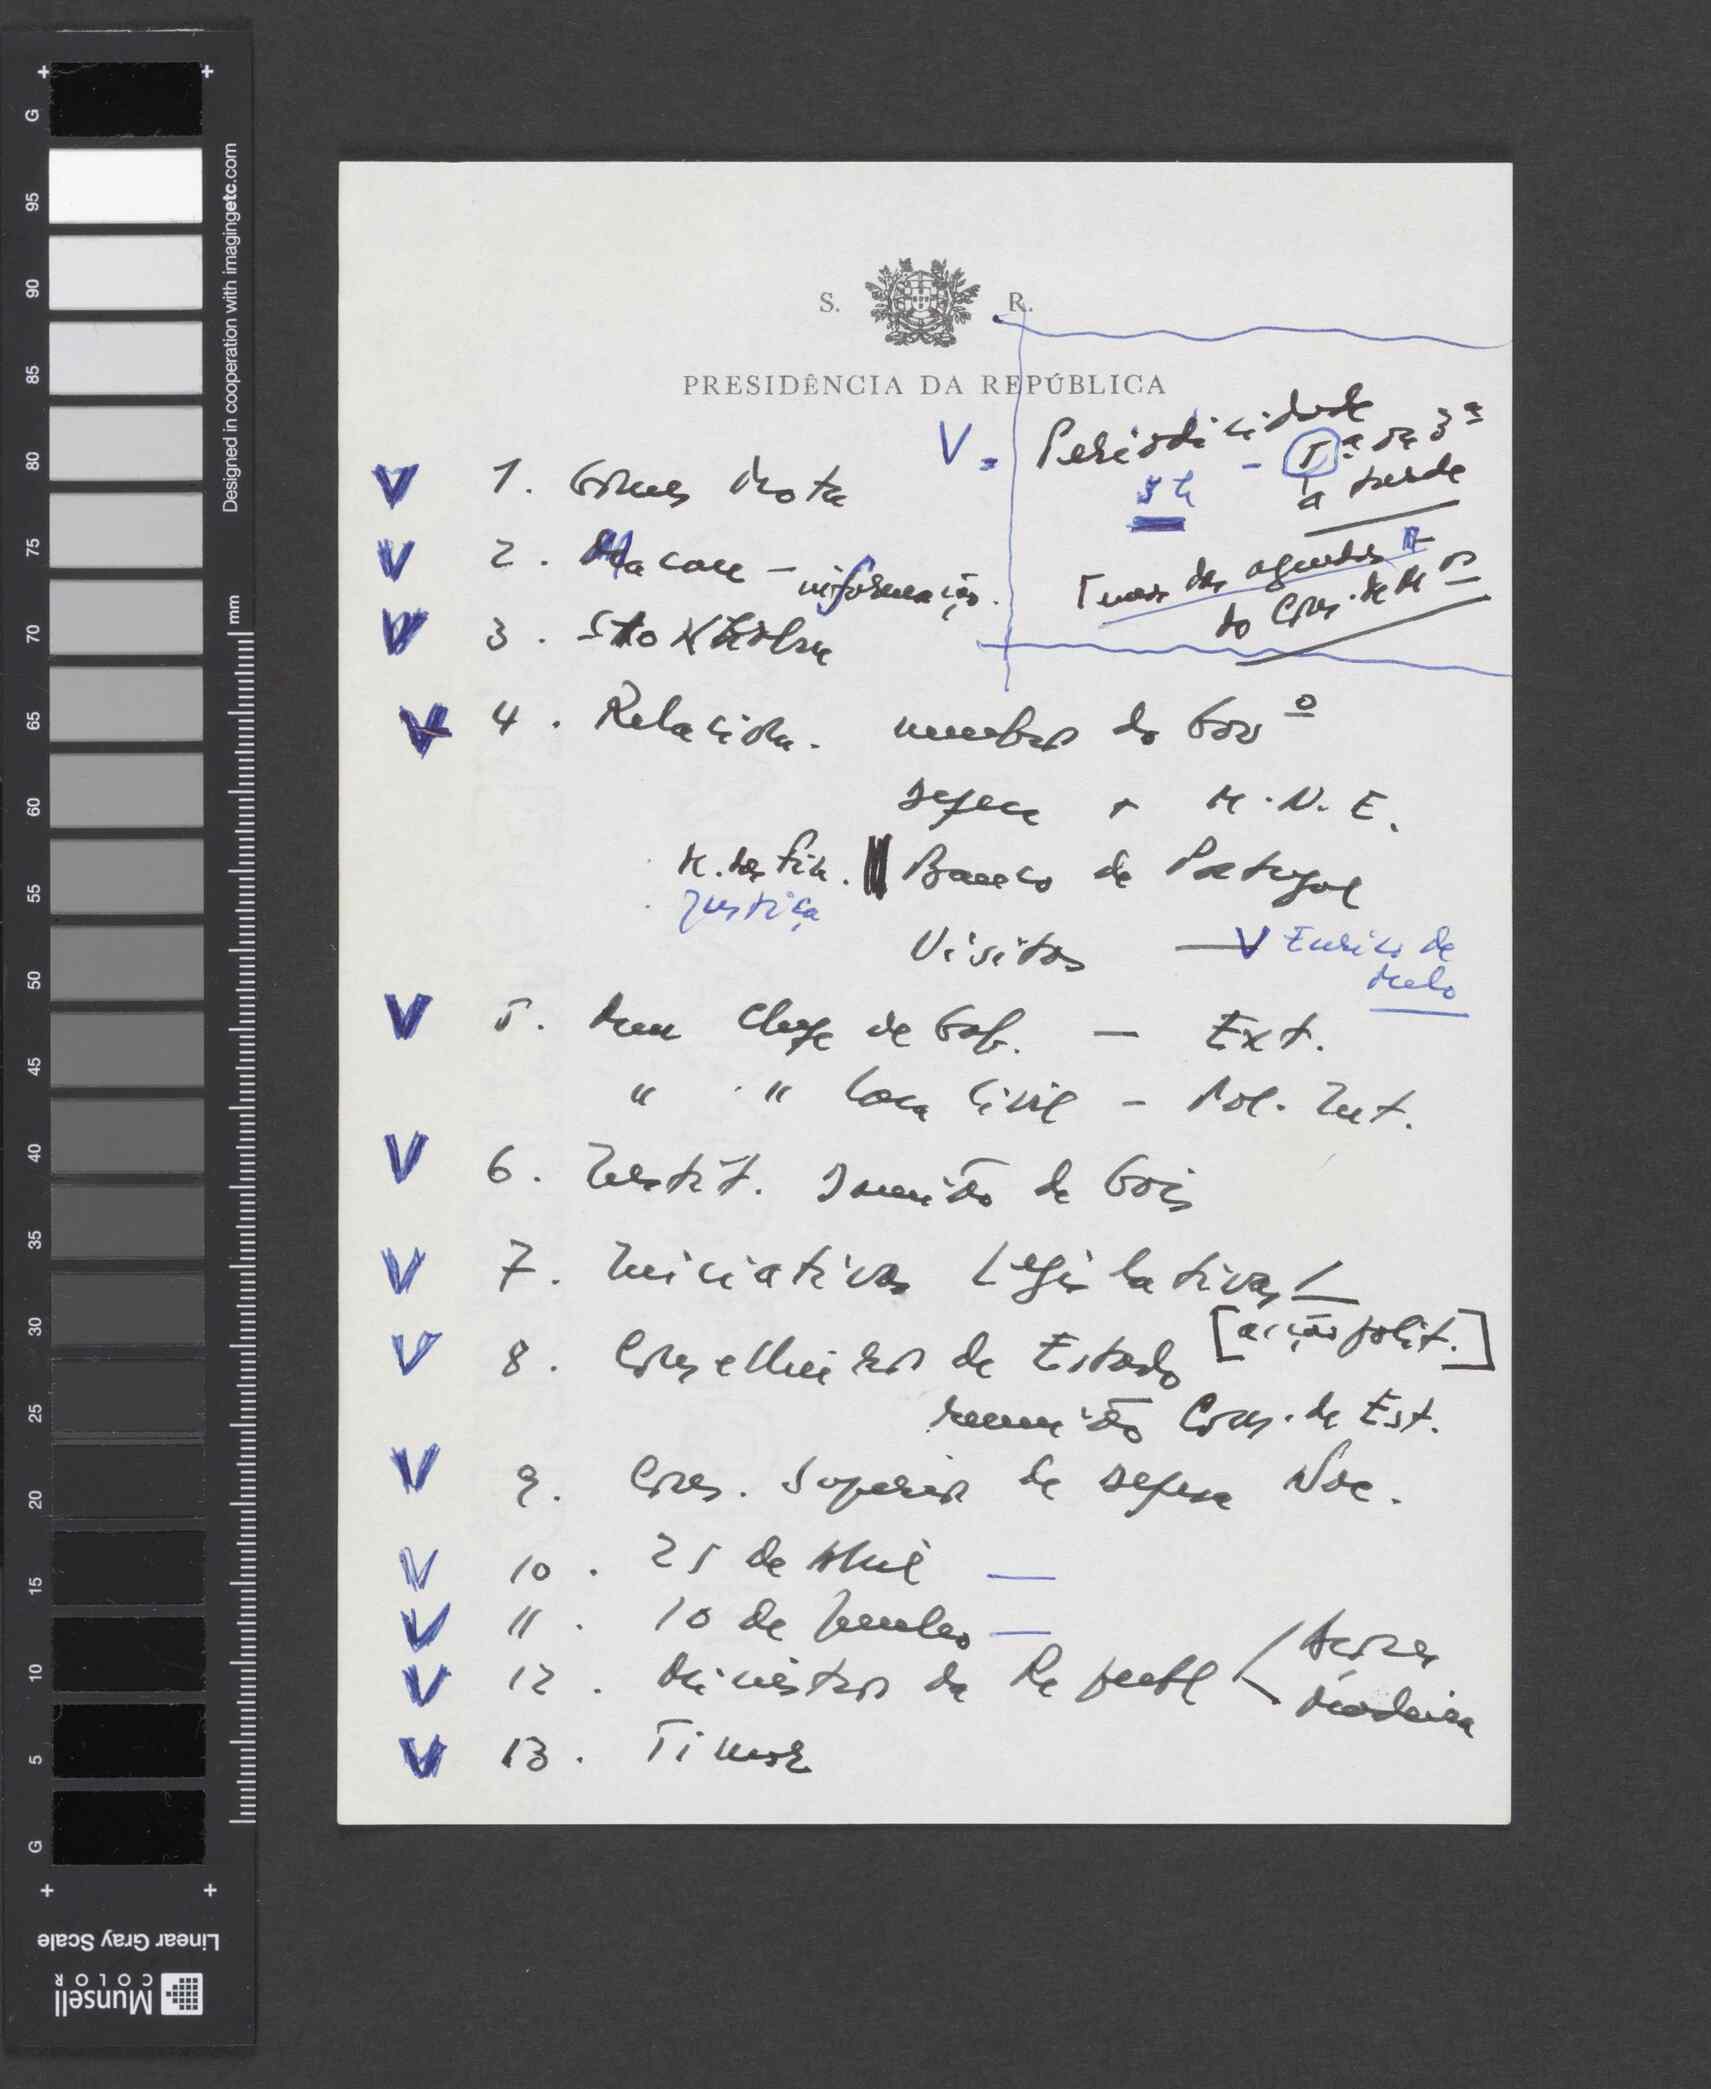 S. R.
PRESIDÊNCIA DA REPÚBLICA
V. Periodicidade
5h - 5ª ou 3ª
à tarde
Temas das agendas
do Cons. de M.os
V 1. Gomes Mota
V 2. Macau - informação.
V 3. Stokholm
V 4. Relacion. membros do Govº
Defesa + M.N.E.
M. das Fin. Banco de Portugal
Justiça
Visitas — V Eurico de
Melo
V 5. Meu Chefe de Gab. — Ext.
" " Casa Civil - Pol. Int.
V 6. Instit. Damião de Góis
V 7. Iniciativas Legislativas
[acção polit.]
V 8. Conselheiros de Estado
reunião Cons. de Est.
V 9. Cons. Superior de Defesa Nac.
V 10. 25 de Abril —
V 11. 10 de Junho —
V 12. Ministros da Republ < Açores
Madeira
V 13. Timor
G 95 90 85 80 75 70 65 60 55 50 45 40 35 30 25 20 15 10 5 G
Designed in cooperation with imagingetc.com
mm
Linear Gray Scale
Munsell
COLOR